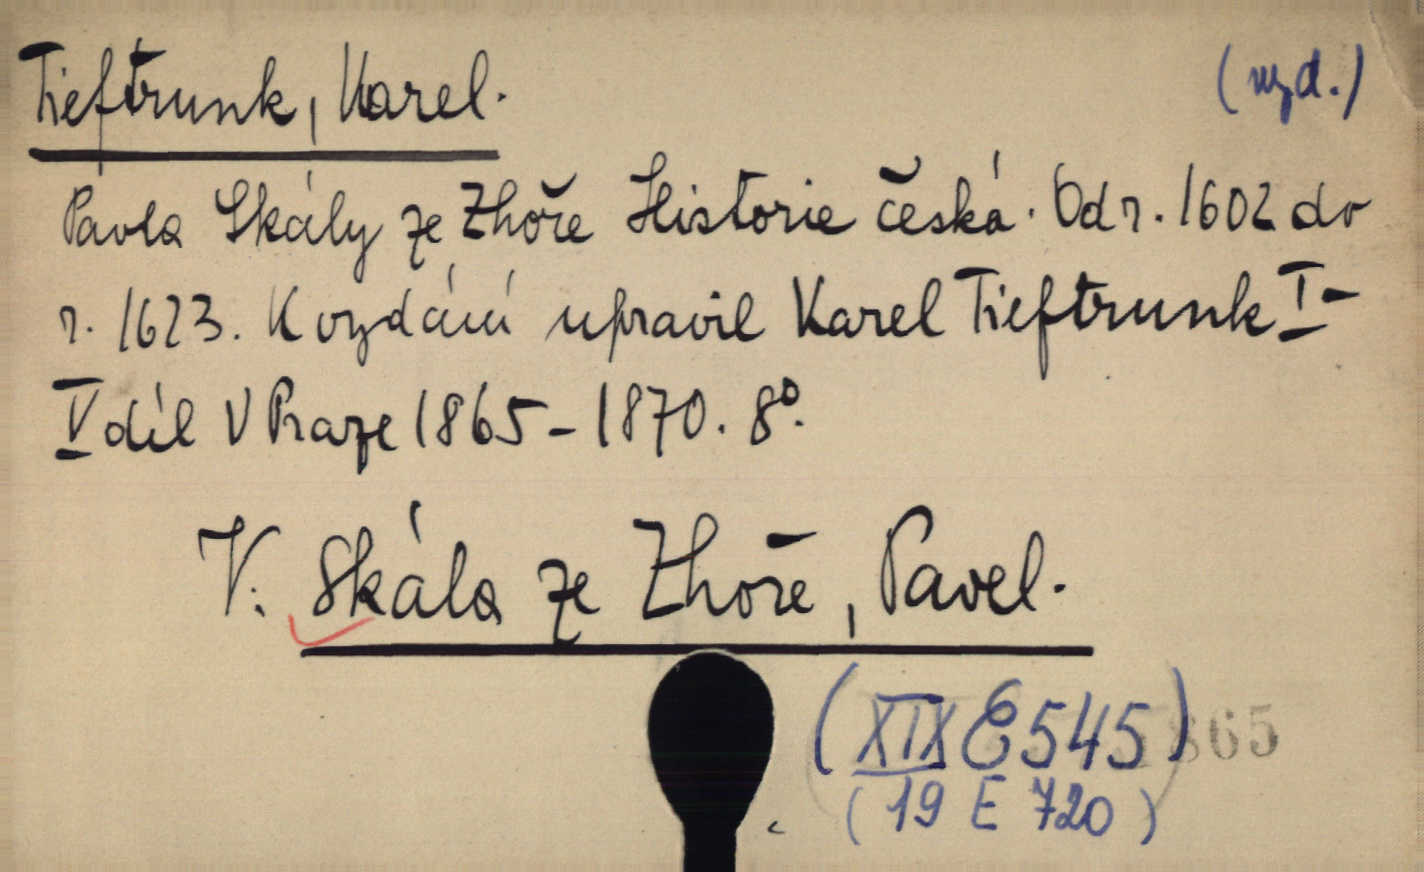 Tieftrunk, Karel. (vyd.)
Pavla Skály ze Zhoře Historie česká. Od r. 1602 do
r. 1623. K vydání upravil Karel Tieftrunk I-
V díl V Praze 1865-1870. 8°.
V. Skála ze Zhoře, Pavel.
(XIX E 545) 865
(19 E 720)